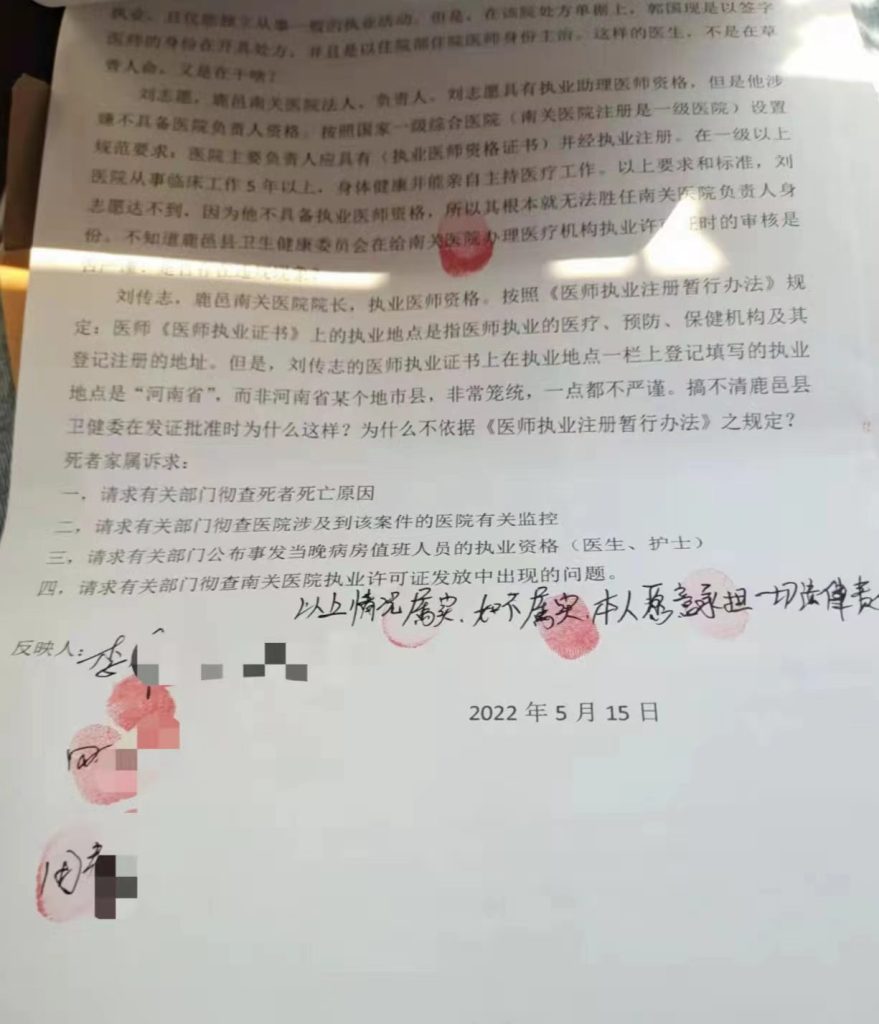 执业，且仅能独立从事一般的执业活动。但是，在该院处方单据上，郭国现是以签字
医师的身份在开具处方，并且是以住院部住院医师身份主治。这样的医生，不是在草
菅人命，又是在干啥？
刘志愿，鹿邑南关医院法人，负责人，刘志愿具有执业助理医师资格，但是他涉
嫌不具备医院负责人资格。按照国家一级综合医院（南关医院注册是一级医院）设置
规范要求：医院主要负责人应具有（执业医师资格证书）并经执业注册。在一级以上
医院从事临床工作 5 年以上，身体健康并能亲自主持医疗工作。以上要求和标准，刘
志愿达不到，因为他不具备执业医师资格，所以其根本就无法胜任南关医院负责人身
份。不知道鹿邑县卫生健康委员会在给南关医院办理医疗机构执业许可证时的审核是
刘传志，鹿邑南关医院院长，执业医师资格。按照《医师执业注册暂行办法》规
定：医师《医师执业证书》上的执业地点是指医师执业的医疗、预防、保健机构及其
登记注册的地址。但是，刘传志的医师执业证书上在执业地点一栏上登记填写的执业
地点是“河南省”，而非河南省某个地市县，非常笼统，一点都不严谨。搞不清鹿邑县
卫健委在发证批准时为什么这样？为什么不依据《医师执业注册暂行办法》之规定？
死者家属诉求：
一，请求有关部门彻查死者死亡原因
二，请求有关部门彻查医院涉及到该案件的医院有关监控
三，请求有关部门公布事发当晚病房值班人员的执业资格（医生、护士）
四，请求有关部门彻查南关医院执业许可证发放中出现的问题。
以上情况属实，如不属实，本人愿意承担一切法律责
反映人：李
2022 年 5 月 15 日